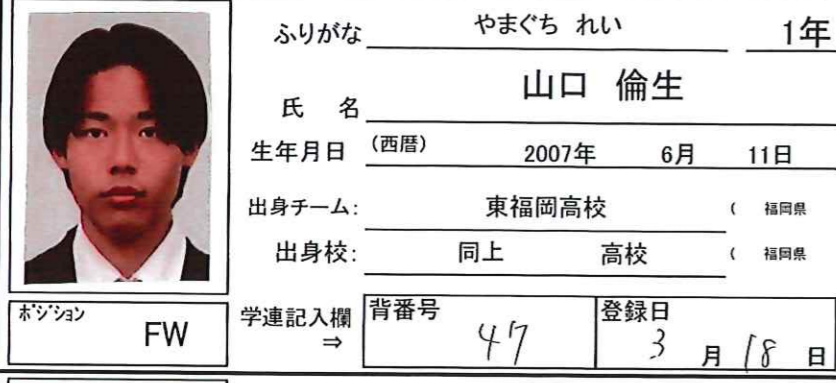 ふりがな やまぐち れい 1年
氏 名 山口 倫生
生年月日 (西暦) 2007年 6月 11日
出身チーム: 東福岡高校 ( 福岡県
出身校: 同上 高校 ( 福岡県
ポジション FW
学連記入欄 ⇒ 背番号 47 登録日 3 月 18 日